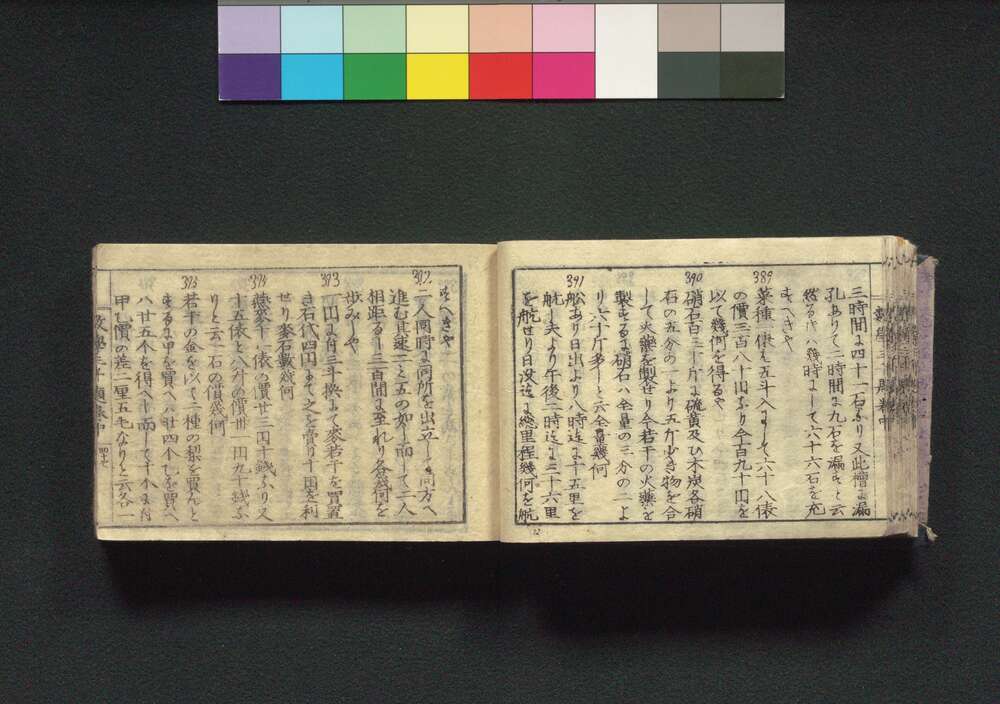 三時間ニ四十一石なり又此槽ニ漏
孔ありて二時間ニ九石を漏すと云
然る時ハ幾時ニして六十六石を充
すへきや
389
菜種一俵ニ五斗入ニして六十八俵
の價三百八十円なり今百九十円を
以て幾何を得るや
390
硝石百三十斤ニ硫黄及ひ木炭各硝
石の五分の一より五斤少き物を合
して火藥を製せり今若干の火藥を
製するに硝石ハ全量の三分の二よ
り六十斤多しと云全量幾何
391
舩あり日出より八時迄ニ十五里を
航し夫より午後二時迄ニ三十六里
を航せり日没迄ニ総里程幾何を航
すへきや
392
二人同時ニ同所を出立し同方へ
進む其速一と五の如し而して二人
相距る三百間ニ至れり各幾何を
歩みしや
393
一円ニ付三斗換にて麥若干を買置
き石代四円にて之を賣り十円を利
せり麥石數幾何
394
燕麥十一俵の價廿三円十銭なり又
十五俵と八斗の價卅一円九十銭な
りと云一石の價幾何
395
若干の金を以て二種の梨を買んと
するに甲を買へハ廿四个乙を買へ
ハ廿五个を得へし而して十个ニ付
甲乙價の差二厘五毛なりと云各一
四十七
12